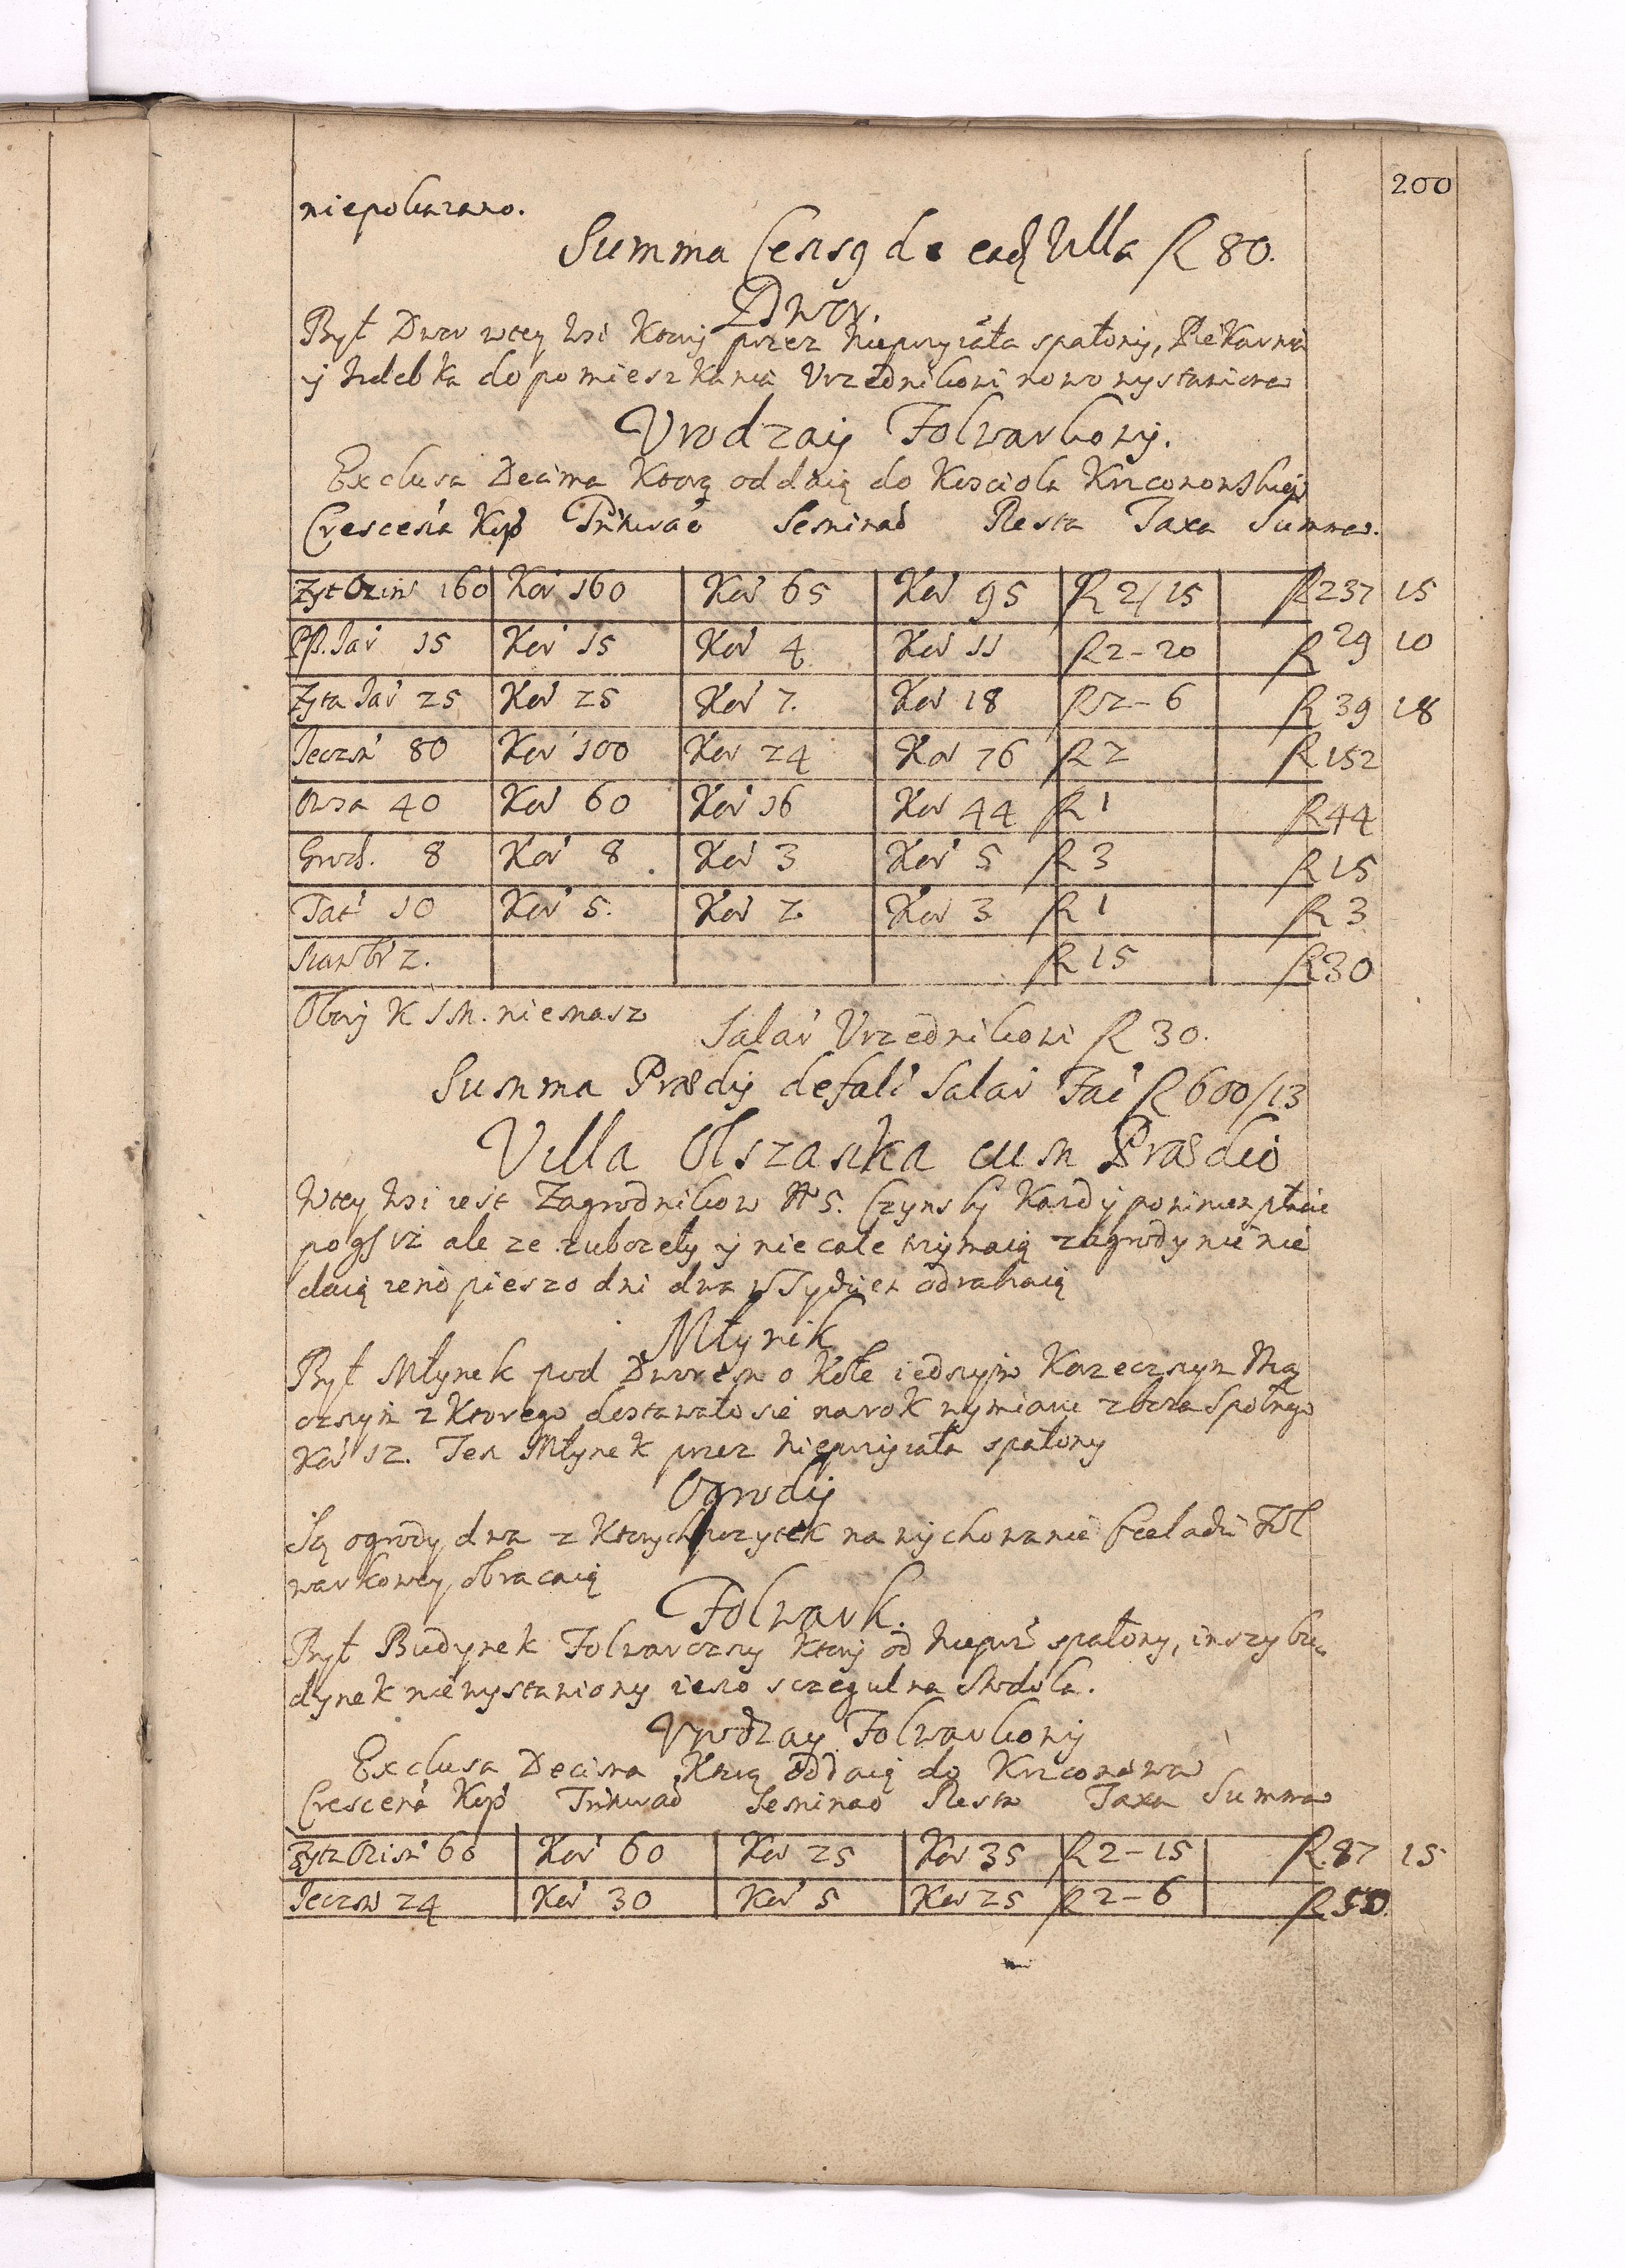 200
niepokazano.
Summa Censq de eadq Villa R 80.
Dwor.
Był Dwor wtey Wsi Ktory przez Nieprzyiáta spalony, Piekarnia
y Izdebka do pomieszkania Vrzędnikowi nowo wystawiona
Vrodzaiy Folwarkowy.
Exclusa Decima Ktorą oddaią do Kosciola Krzconowskiego
Crescena Kop Triturao Seminao Resta Taxa Summa.
Zyt Ozim 160 Kor 160 Kor 65 Kor 95 R 2/15 R 237 15
Psz. Jar 15 Kor 15 Kor 4 Kor 11 R 2-20 R 29 10
Zyta Jar 25 Kor 25 Kor 7. Kor 18 R 2-6 R 39 18
Jeczm 80 Kor 100 Kor 24 Kor 76 R 2 R 152
Owsa 40 Kor 60 Kor 16 Kor 44 R 1 R 44
Groch. 8 Kor 8. Kor 3 Kor 5 R 3 R 15
Tat 10 Kor 5. Kor 2. Kor 3 R 1 R 3
2. R 15 R 30
Obory niemasz
Salar Vrzednikowi R 30.
Summa Prædij defalc Salar Fac R 600/13
Villa Olszanka cum Prædio
Wtey Wsi iest Zagrodnikow N 5. Czynszu Kazdy powinien płacic
po gs 12 ale ze zubozely y niecałe trzymaią zagrody nic nie
daią ieno pieszo dni dwa w Tydzien odrabiaią
Młynik
Był Młynek pod Dworem o Kole iednym Korzecznym Mą
cznym z Ktorego dostawało sie narok wymiaru zboza Społnego
Kor 12. Ten Młynek przez Nieprzyiáta spalony
Ogrody
Są ogrody dwa z Ktorych pozytek na wychowanie Czeladzi Fol
warkowey obracaią
Folwark.
Był Budynek Folwarczny Ktory od Niepr spalony, inszy bu
dynek niewystawiony ieno sczegulna Stodola.
Vrodzay Folwarkowy
Exclusa Decima Ktorą oddaią do Krzconowa
Crescena Kop Triturao Seminao Resta Taxa Summa
Zyta Ozim 60 Kor 60 Kor 25 Kor 35 R 2-15 R 87 15
Jeczm 24 Kor 30 Kor 5 Kor 25 R 2-6 R 50.